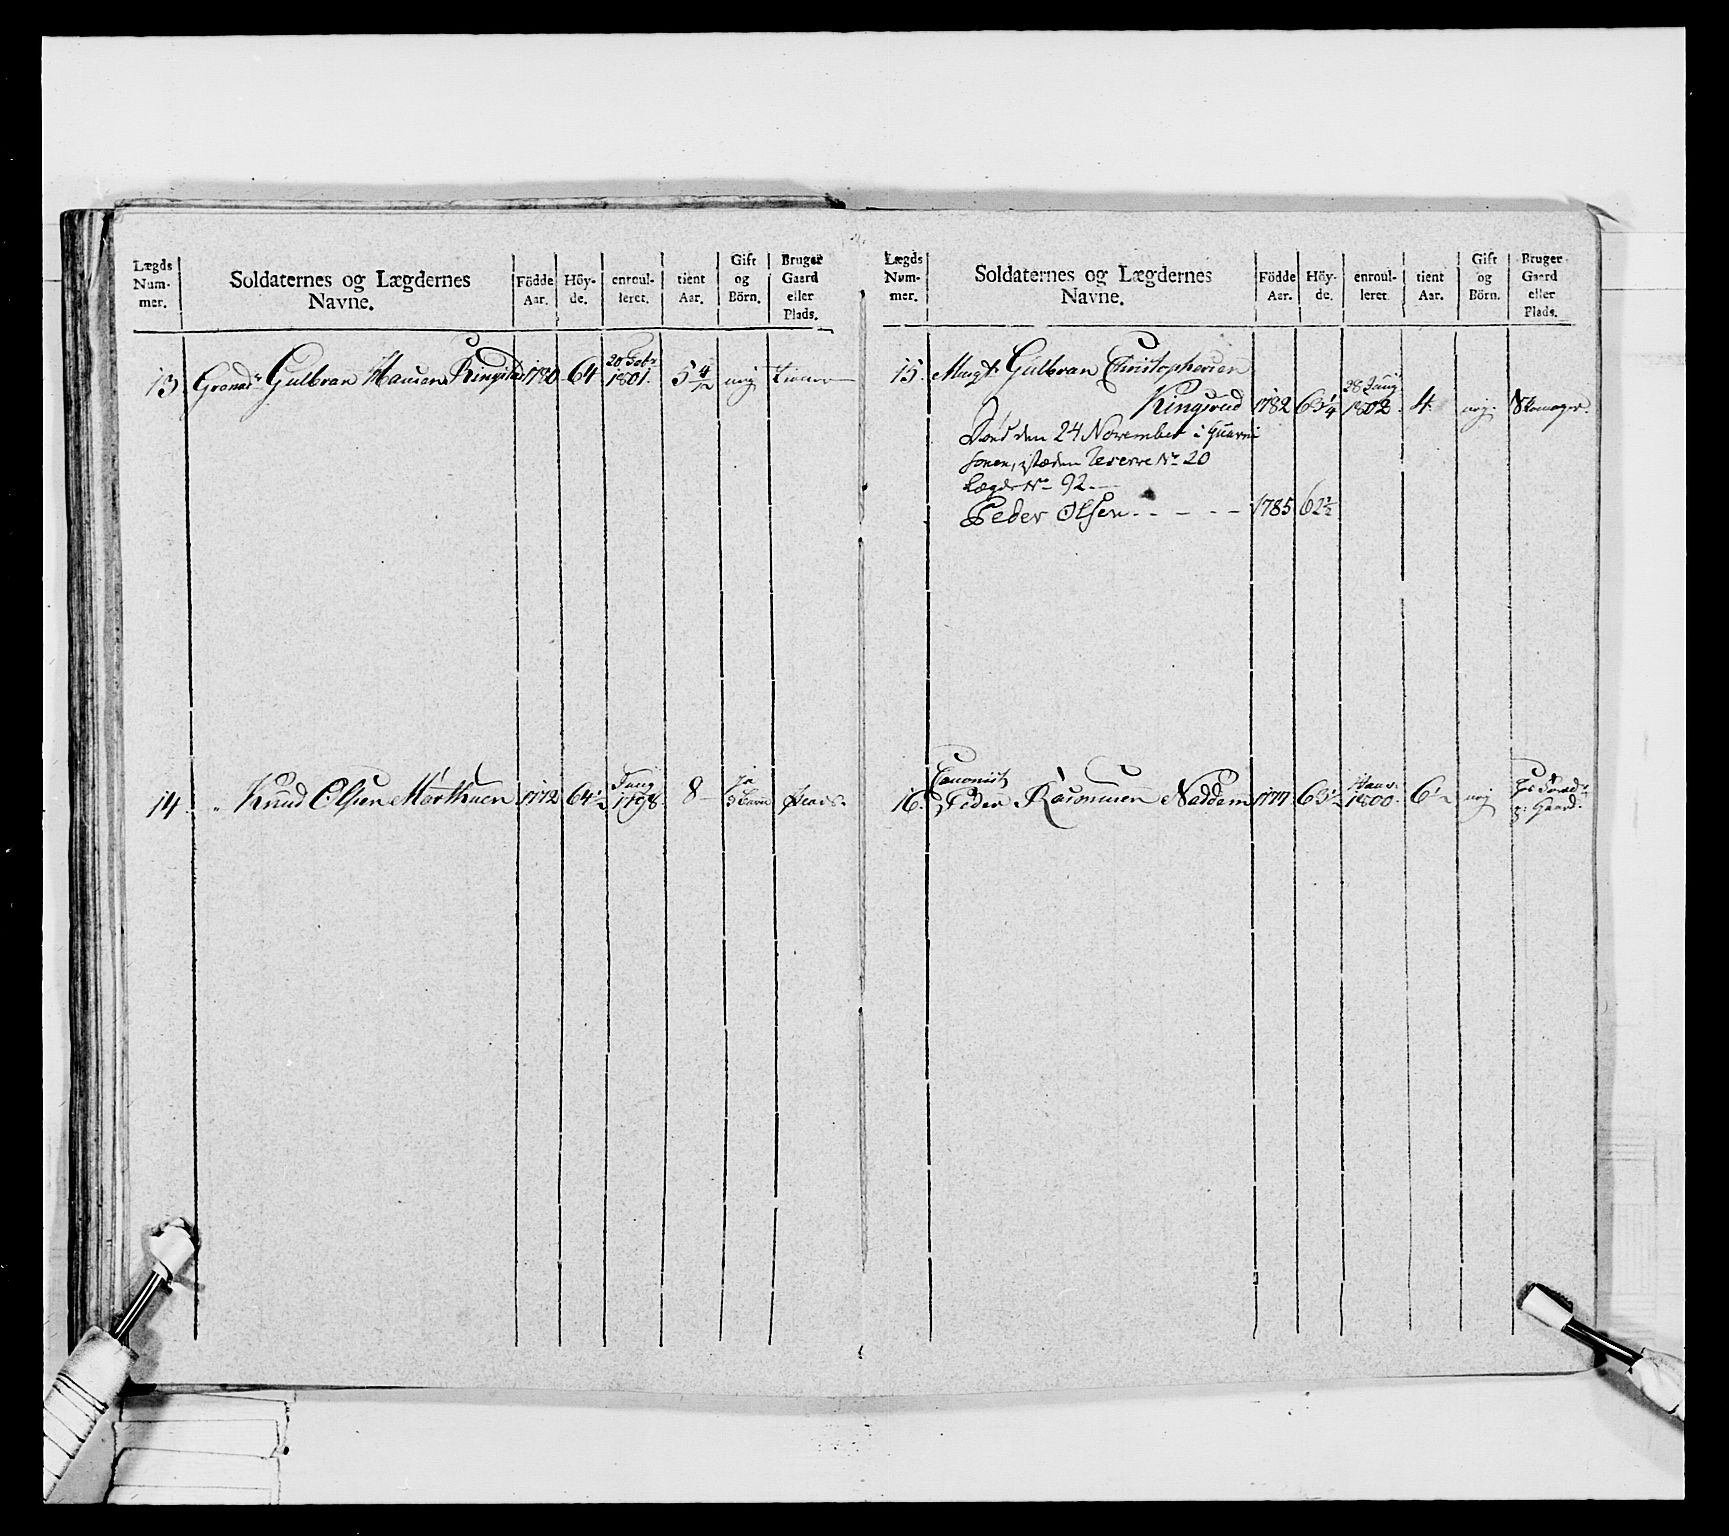 Lægds Num-mer. Soldaternes og Lægdernes Navne. Födde Aar. Höy-de. enroul-leret. tient Aar. Gift og Börn. Bruger Gaard eller Plads.
13. Grenad: Gulbran Hansen Ringstad 1780 64 20 Febr 1801. 5 4/12 nej
14. " Knud Olsen 1772 64½ Juny 1798. 8 Ja 3 Børn
Lægds Num-mer. Soldaternes og Lægdernes Navne. Födde Aar. Höy-de. enroul-leret. tient Aar. Gift og Börn. Bruger Gaard eller Plads.
15. Musqt: Gulbran Christophersen
Ringsrud 1782 63¼ 28 Juny 1802. 4 nej. Skomager.
Død den 24 November i Guarni
sonen, istæden Reserve No 20
Lægds No 92
Peder Olsen 1785 62½
16. Peder Rasmusen Naddem 1777 63½ 1800. 6½ nej